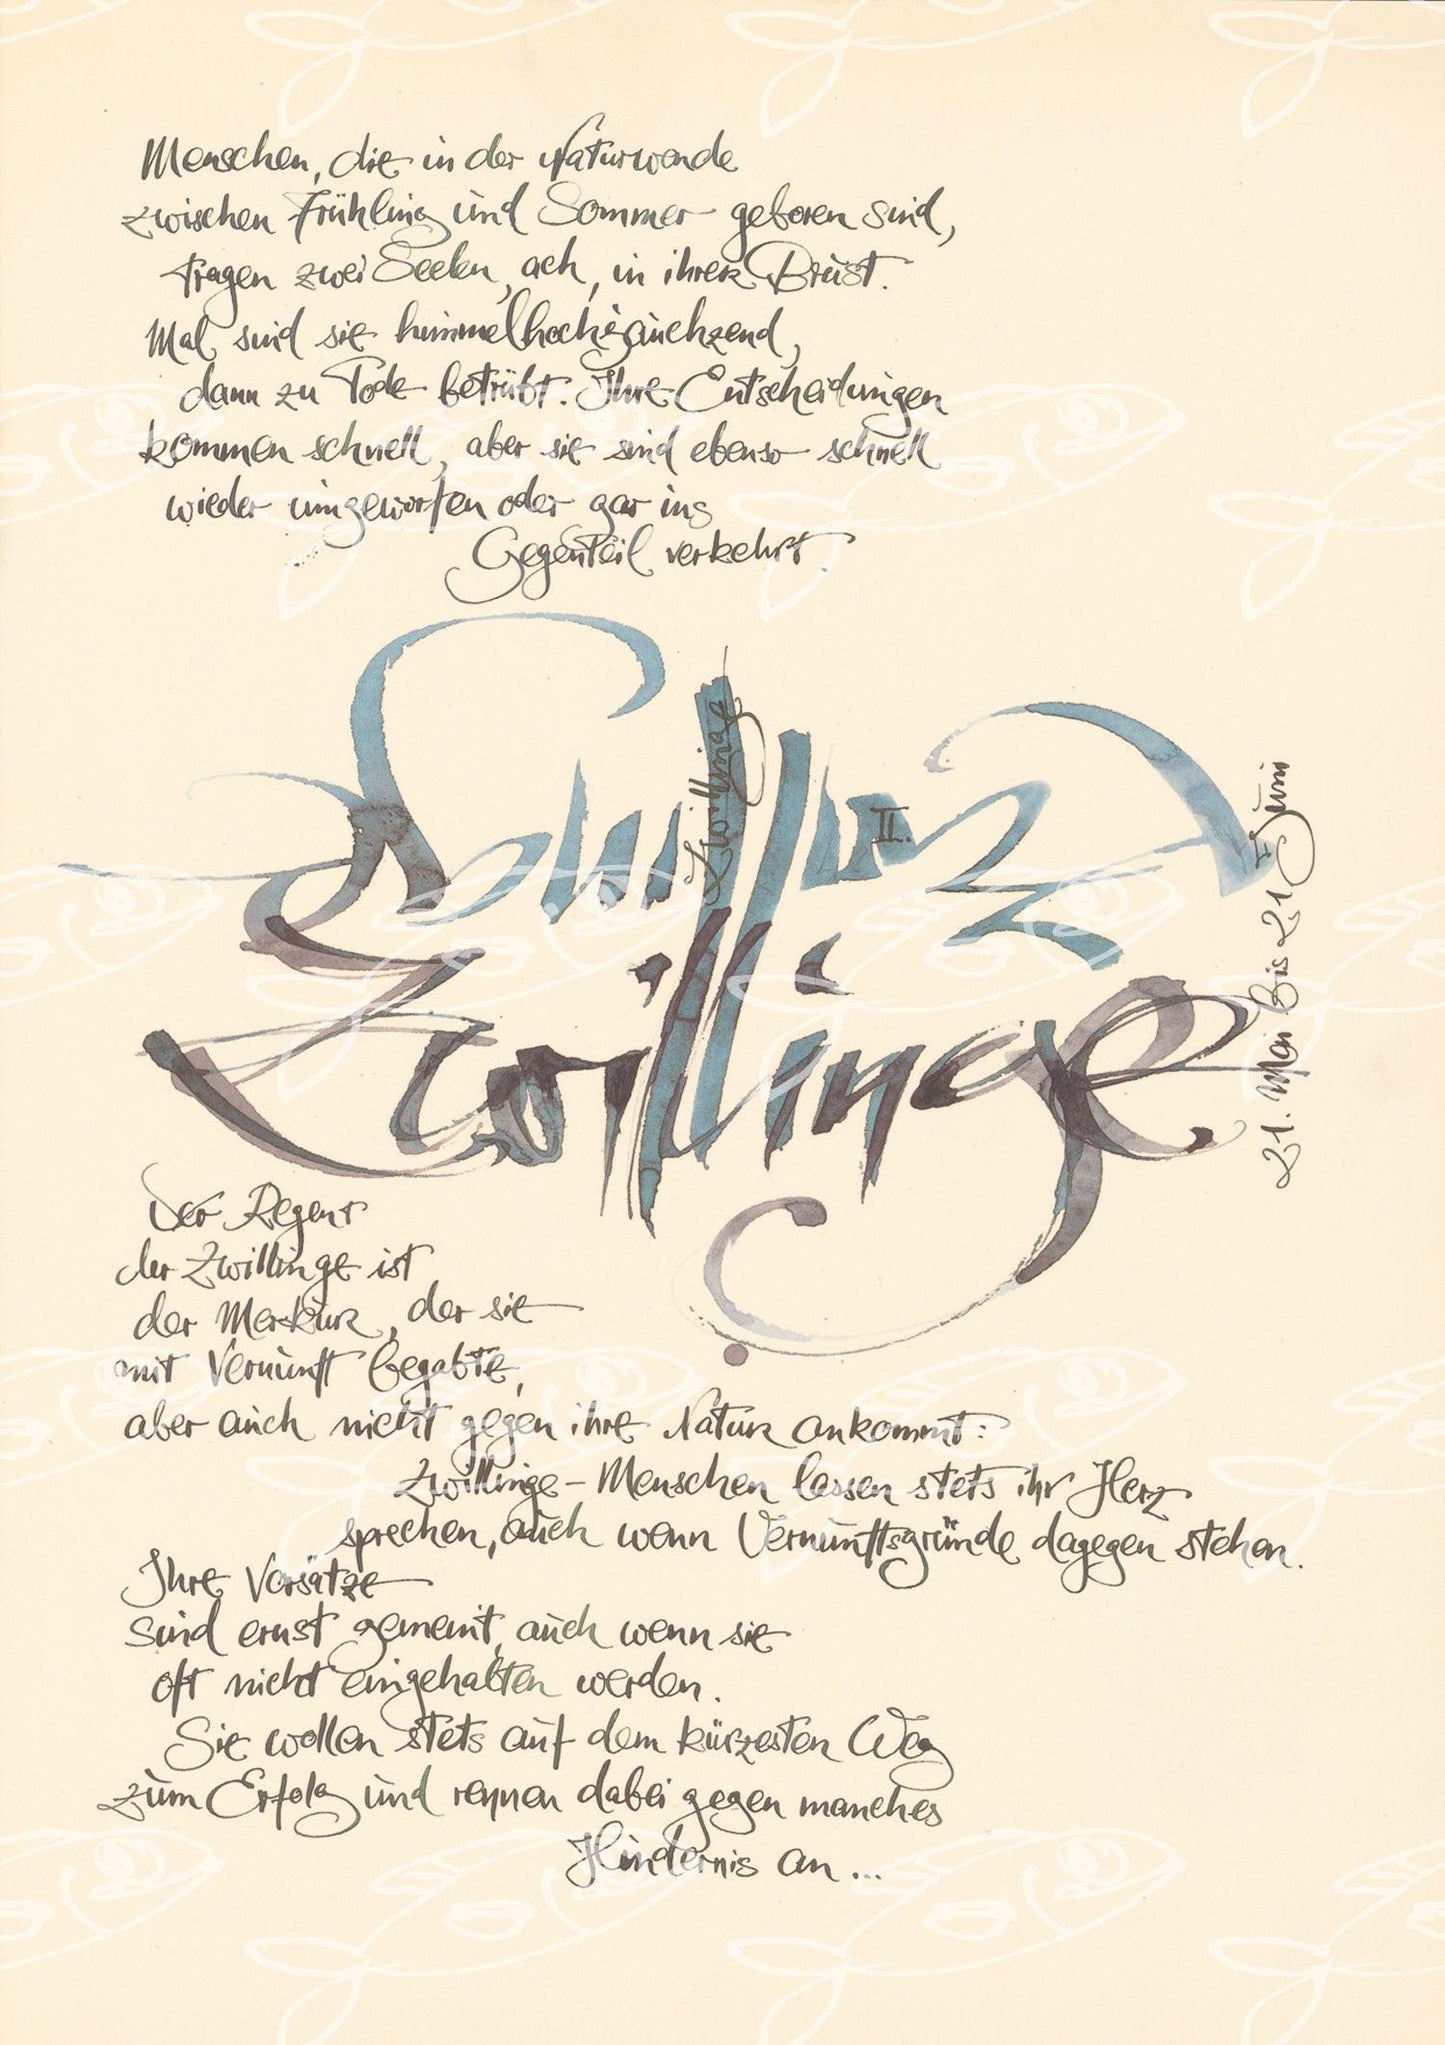 Menschen, die in der Naturwende
zwischen Frühling und Sommer geboren sind,
tragen zwei Seelen, ach, in ihrer Brust.
Mal sind sie himmelhochjauchzend,
dann zu Tode betrübt. Ihre Entscheidungen
kommen schnell, aber sie sind ebenso schnell
wieder umgeworfen oder gar ins
Gegenteil verkehrt.
Zwillinge
II.
Zwillinge
21. Mai bis 21 Juni
Der Regent
der Zwillinge ist
der Merkur, der sie
mit Vernunft begabte,
aber auch nicht gegen ihre Natur ankommt:
Zwillinge-Menschen lassen stets ihr Herz
sprechen, auch wenn Vernunftsgründe dagegen stehen.
Ihre Vorsätze
sind ernst gemeint, auch wenn sie
oft nicht eingehalten werden.
Sie wollen stets auf dem kürzesten Weg
zum Erfolg und rennen dabei gegen manches
Hindernis an...